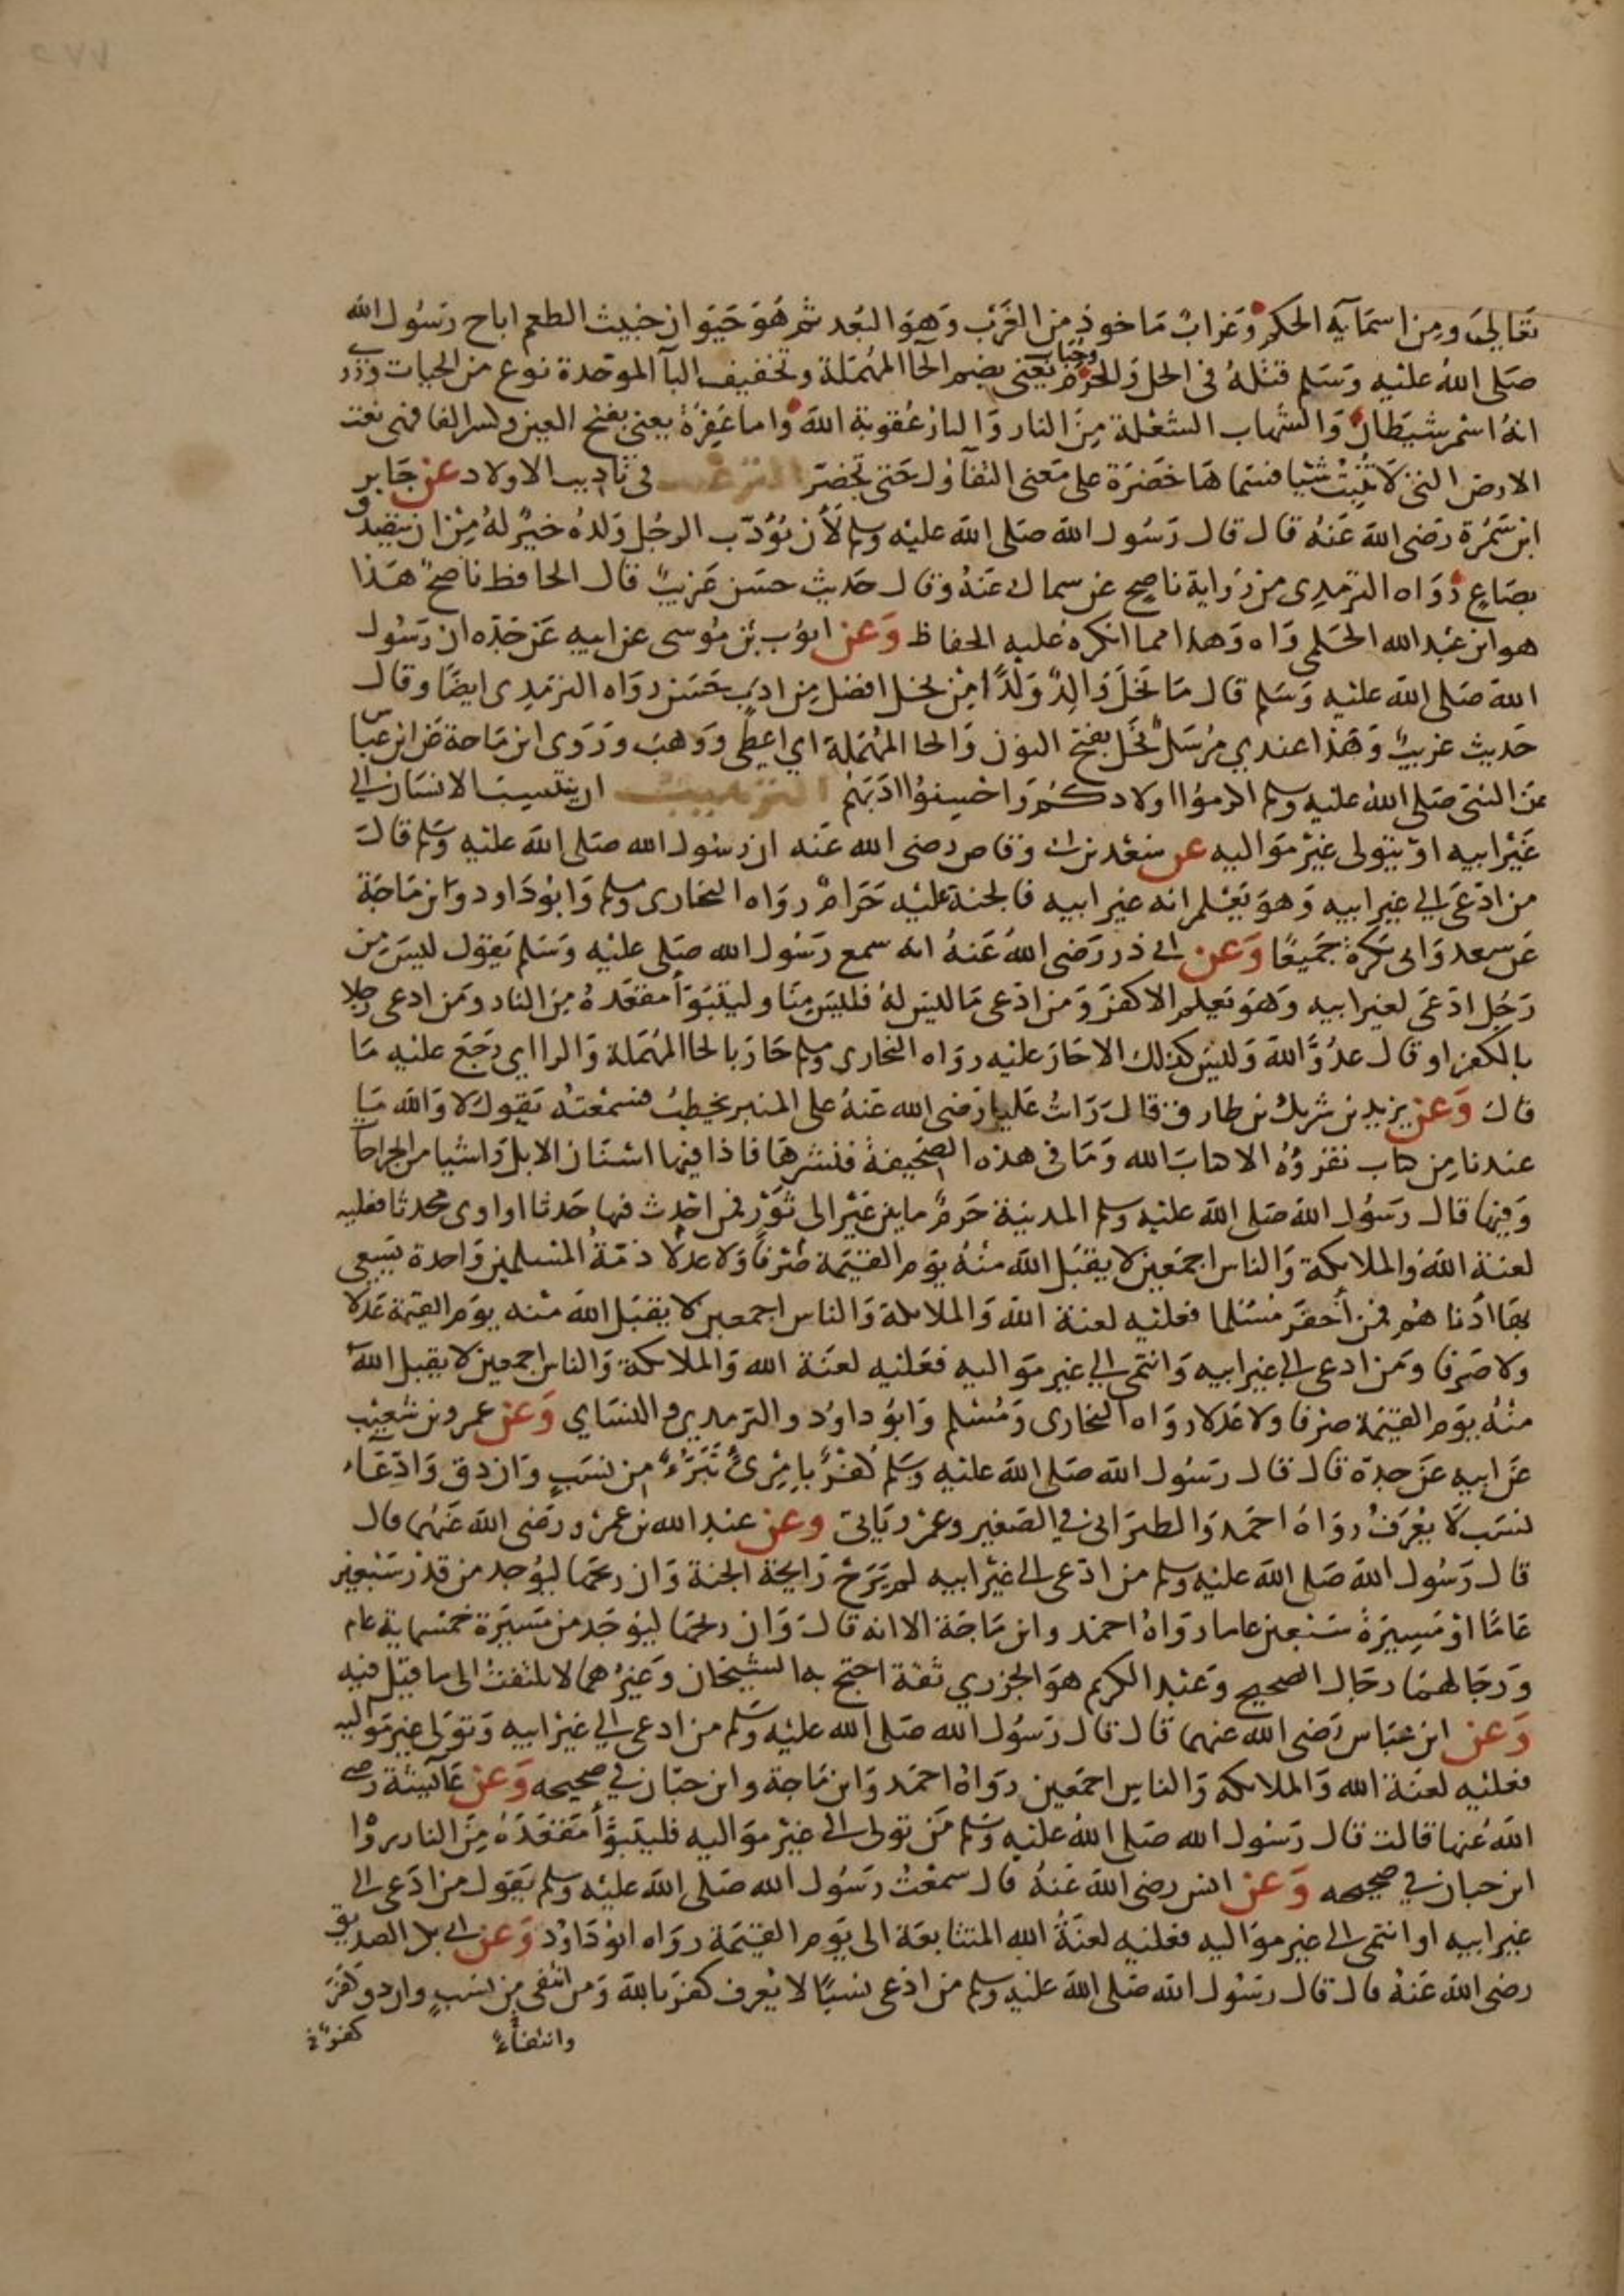 تعالى ومن اسمايه الحكم وغراب ماخوذ من الغرب وهو البعد ثم هو حيوان خبيث الطعم اباح رسول الله
صلى الله عليه وسلم قتله فى الحل والحرم وحباب يعنى بضم الحا المهملة وتخفيف البآ الموحدة نوع من الحيات وروى
انه اسم شيطان والشهاب الشعلة من النار والنار عقوبة الله واما عَفِرَة يعنى بفتح العين وكسر الفا فهى نعت
الارض التى لا تنبت شيا فسماها خضرة على معنى التفآؤل حتى تخضرّ الترغيب فى تاديب الاولاد عن جابر
ابن سمرة رضى الله عنه قال قال رسول الله صلى الله عليه وسلم لأن يؤدّب الرجل ولده خيرٌ له من ان يتصدق
بصاعٍ رواه الترمدى من رواية ناصح عن سماك عنه وقال حديث حسن غريبٌ قال الحافظ ناصحٌ هذا
هو ابن عبد الله المحلمى واه وهدا مما انكره عليه الحفاظ وعن ايوب بن موسى عن ابيه عن جدّه ان رسول
الله صلى الله عليه وسلم قال ما نَحَلَ والِدٌ وَلَدًا مِن نحل افضل من ادب حسن رواه الترمدى ايضًا وقال
حديث غريبٌ وهذا عندي مرسل نَحَل بفتح النون والحا المهملة اي اعطى ووهب وروى ابن ماجة عن ابن عباس
عن النبى صلى الله عليه وسلم اكرموا اولادكم واحسنوا ادبهم الترهيب ان ينتسب الانسان الى
غير ابيه او يتولى غير مواليه عن سعد بن ابى وقاص رضى الله عنه ان رسول الله صلى الله عليه وسلم قال
من ادّعى الى غير ابيه وهو يعلم انه غير ابيه فالجنة عليه حرامٌ رواه البخارى ومسلم وابو داود وابن ماجة
عن سعد وابى بكرة جميعًا وعن ابى ذر رضى الله عنه انه سمع رسول الله صلى عليه وسلم يقول ليس من
رجل ادّعى لغير ابيه وهو يعلم الا كفر ومن ادّعى ما ليس له فليس منّا وليتبوّأ مقعده من النار ومن ادعى رجلا
بالكفر او قال عدوَّ الله وليس كذلك الا حار عليه رواه البخارى ومسلم حار بالحا المهملة والرا اي رجع عليه ما
قال وعن يزيد بن شريك بن طارق قال رايت عليا رضى الله عنه على المنبر يخطب فسمعته يقول لا والله ما
عندنا من كتاب نقرؤه الا كتاب الله وما فى هذه الصحيفة فنشرها فاذا فيها اسنان الابل واشيا من الجراحات
وفيها قال رسول الله صلى الله عليه وسلم المدينة حرمٌ ما بين عَيْر الى ثَوْر فمن احدث فيها حدثا او اوى محدثا فعليه
لعنة الله والملايكة والناس اجمعين لا يقبل الله منه يوم القيمة صرفًا ولا عدلًا ذمّةُ المسلمين واحدة يسعى
بها ادناهم فمن أخفر مسلما فعليه لعنة الله والملايكة والناس اجمعين لا يقبل الله منه يوم القيمة عدلا
ولا صرفا ومن ادعى الى غير ابيه وانتمى الى غير مواليه فعليه لعنة الله والملايكة والناس اجمعين لا يقبل الله
منه يوم القيمة صرفا ولا عدلا رواه البخارى ومسلم وابو داود والترمدي والنساي وعن عمرو بن شعيب
عن ابيه عن جدة قال قال رسول الله صلى الله عليه وسلم كُفرٌ بامرئ تَبَرُّءٌ من نسبٍ وان دق وادّعاء
نسب لا يعرف رواه احمد والطبرانى في الصغير وعمرو ياتى وعن عبد الله بن عمرو رضى الله عنهما قال
قال رسول الله صلى الله عليه وسلم من ادّعى الى غير ابيه لم يَرَحْ رايحة الجنة وان ريحها ليوجد من قدر سبعين
عامًا او مسيرة سبعين عاما رواه احمد وابن ماجة الا انه قال وان ريحها ليوجد من مسيرة خمسماية عام
ورجالهما رجال الصحيح وعبد الكريم هو الجزري ثقة احتج به الشيخان وغيرهما لا يلتفت الى ما قيل فيه
وعن ابن عباس رضى الله عنهما قال قال رسول الله صلى الله عليه وسلم من ادعى الى غير ابيه وتولى غير مواليه
فعليه لعنة الله والملايكه والناس اجمعين رواه احمد وابن ماجة وابن حبّان في صحيحه وعن عآئشة رضى
الله عنها قالت قال رسول الله صلى الله عليه وسلم من تولى الى غير مواليه فليتبوّأ مقعده من النار رواه
ابن حبان في صحيحه وعن انس رضى الله عنه قال سمعت رسول الله صلى الله عليه وسلم يقول من ادعى الى
غير ابيه او انتمى الى غير مواليه فعليه لعنة الله المتتابعة الى يوم القيمة رواه ابو داود وعن ابى بكر الصديق
رضى الله عنه قال قال رسول الله صلى الله عليه وسلم من ادّعى نسبًا لا يُعرف كفر بالله ومن انتفى من نسبٍ وان دق كفر
وانتفآءً كفرٌ